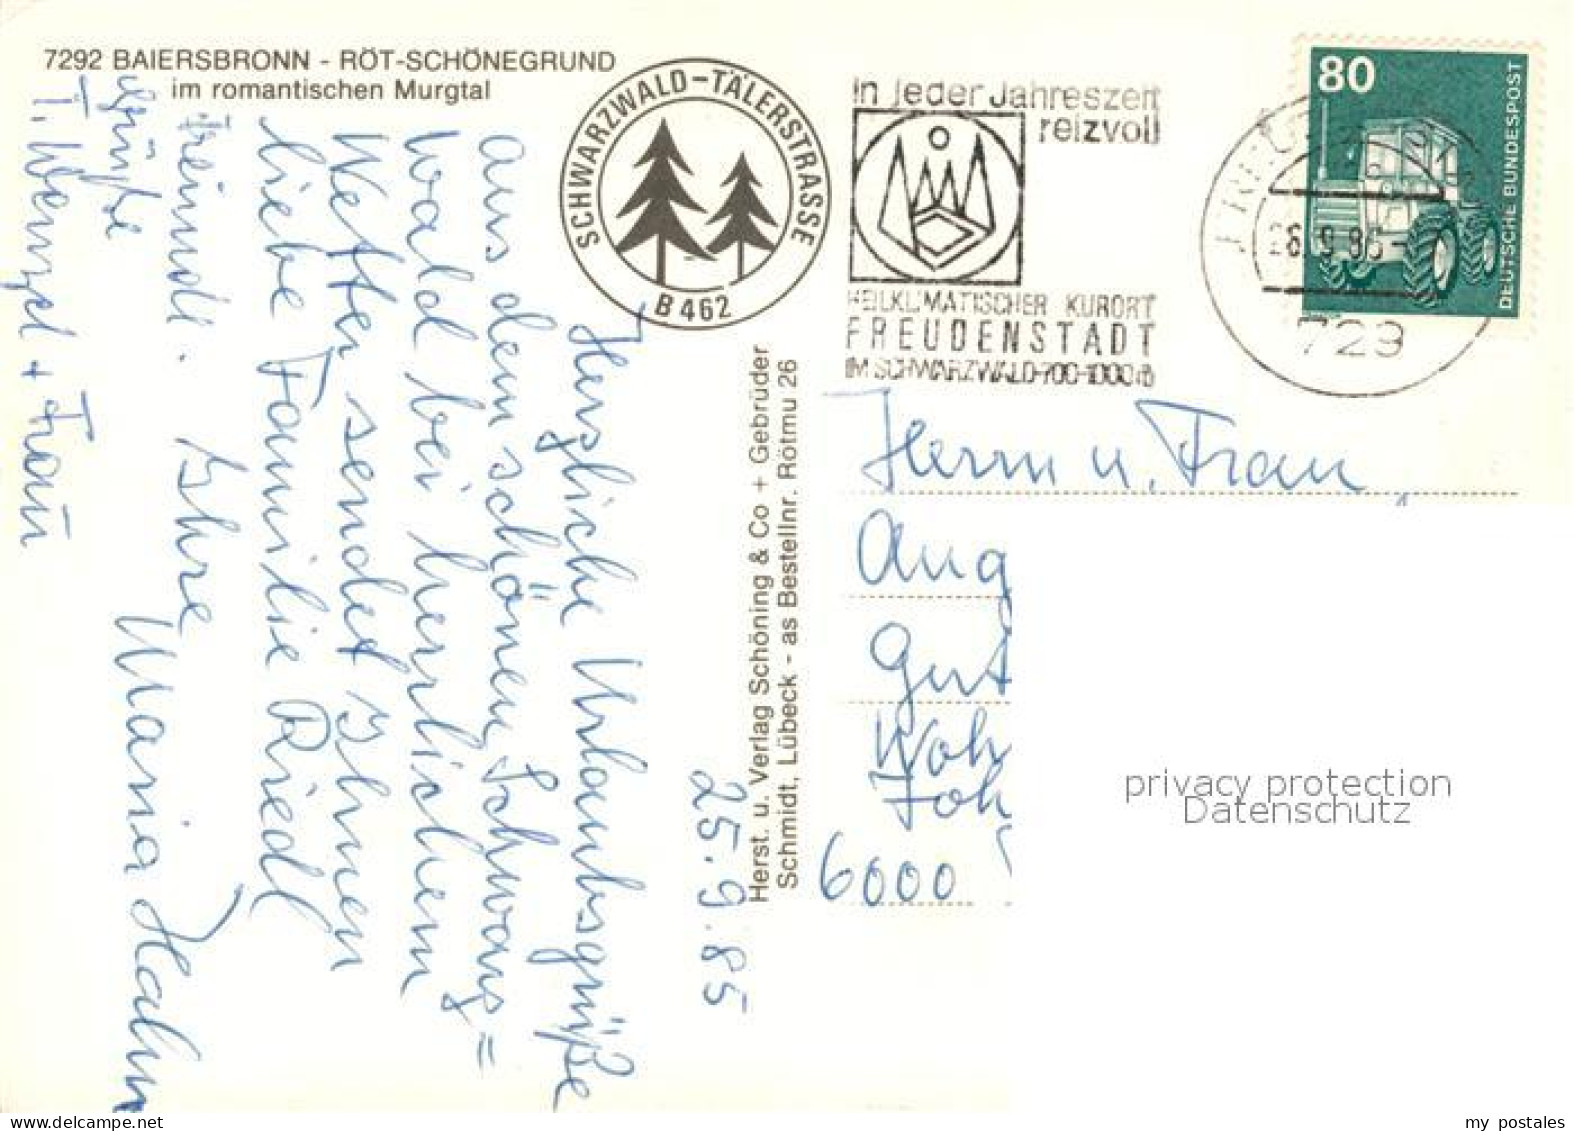 7292 BAIERSBRONN - RÖT-SCHÖNEGRUND
im romantischen Murgtal
SCHWARZWALD-TÄLERSTRASSE
B 462
In jeder Jahreszeit
reizvoll
HEILKLIMATISCHER KURORT
FREUDENSTADT
IM SCHWARZWALD 700-1000 m
80
DEUTSCHE BUNDESPOST
729
25.9.85
Herzliche Urlaubsgrüße
aus dem schönen Schwarz=
wald bei herrlichem
Wetter sendet Ihnen
liebe Familie Riedl
Ihre Maria Hahn
Grüße
+ Frau
Herst. u. Verlag Schöning & Co + Gebrüder
Schmidt, Lübeck - as Bestellnr. Rötmu 26
Herrn u. Frau
Aug
Gut
Woh
Joh
6000
privacy protection
Datenschutz
my postales